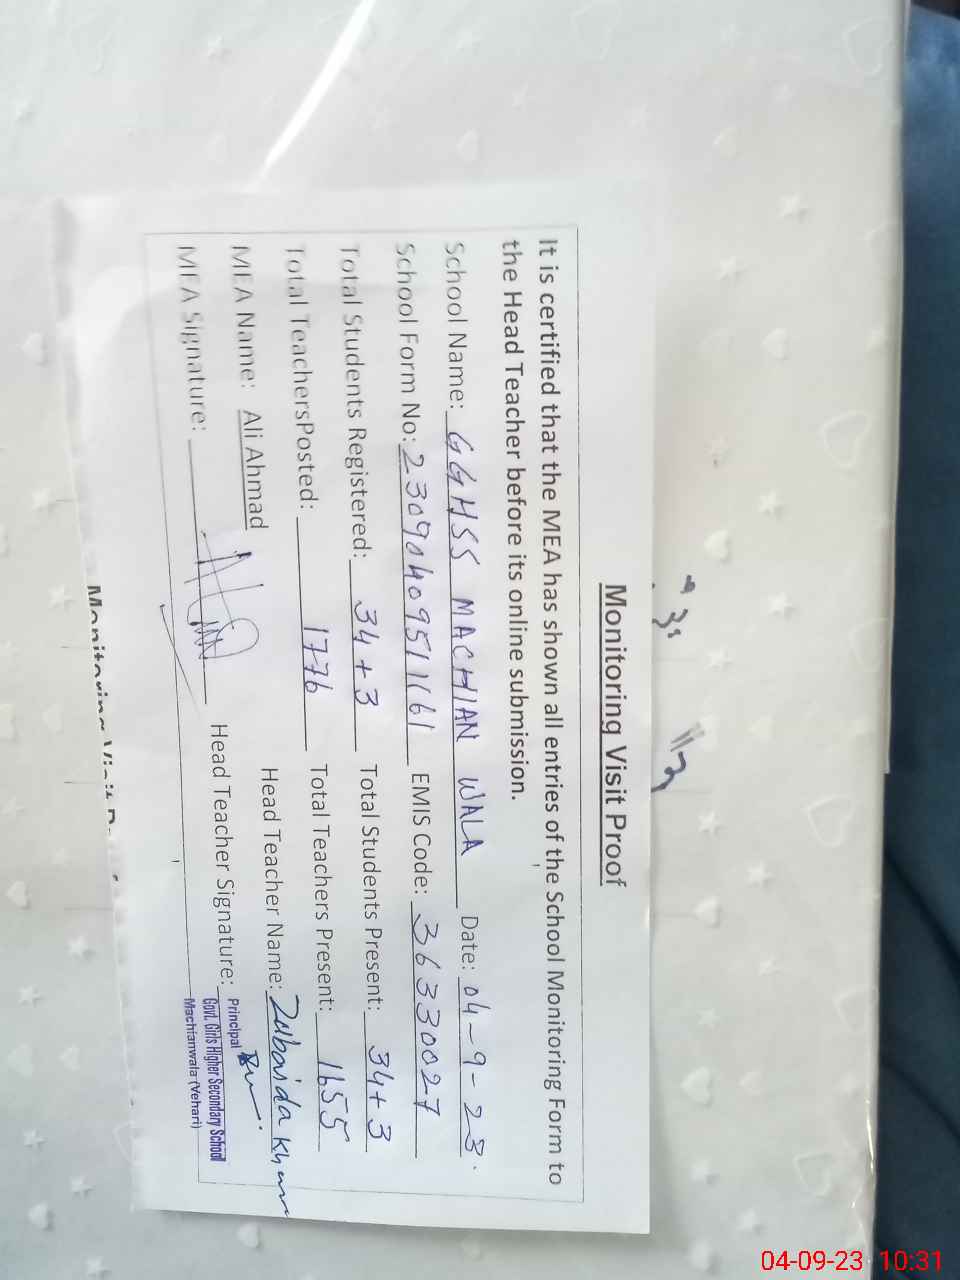 Monitoring Visit Proof
It is certified that the MEA has shown all entries of the School Monitoring Form to
the Head Teacher before its online submission.
School Name: GGHSS MACHIAN WALA Date: 04-9-23.
School Form No: 23090409511161 EMIS Code: 36330027
Total Students Registered: 34+3 Total Students Present: 34+3
Total TeachersPosted: 1776 Total Teachers Present: 1655
MEA Name: Ali Ahmad Head Teacher Name: Zubaida Khan
MEA Signature: Head Teacher Signature:
Principal
Govt. Girls Higher Secondary School
Machianwala (Vehari)
Monitoring Visit
04-09-23 10:31